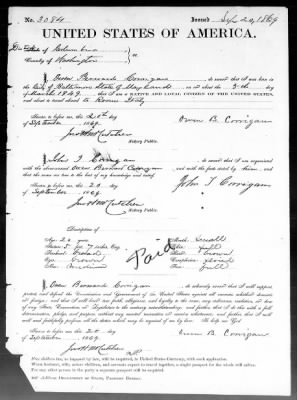 No. 3084 Issued Sep 20, 1869
UNITED STATES OF AMERICA.
District of Columbia
County of Washington
I, Owen Bernard Corrigan, do swear that I was born in the
City of Baltimore State of Maryland, on or about the 5th day
of March 1849; that I am a NATIVE AND LOYAL CITIZEN OF THE UNITED STATES,
and about to travel abroad to Rome Italy
Sworn to before me this 20th day
of September 1869
Owen B. Corrigan
Notary Public.
I, John I Corrigan, do swear that I am acquainted
with the above-named Owen Bernard Corrigan and with the facts stated by him, and
that the same are true to the best of my knowledge and belief.
Sworn to before me this 20 day
of September 1869
John I Corrigan
Notary Public.
Description of
Age: 20 years
Mouth: Small
Stature: 5 feet 7 inches Eng.
Chin: full
Forehead:
Hair: brown
Eyes: brown
Complexion: florid
Nose: medium
Face: full
Paid
I, Owen Bernard Corrigan, do solemnly swear that I will support,
protect, and defend the Constitution and Government of the United States against all enemies, whether domestic
or foreign; and that I will bear true faith, allegiance, and loyalty to the same, any ordinance, resolution, or law
of any State, Convention, or Legislature to the contrary notwithstanding; and further, that I do this with a full
determination, pledge, and purpose, without any mental reservation or evasion whatsoever; and further, that I will
well and faithfully perform all the duties which may be required of me by law. So help me God
Sworn to before me this 20 day
of September 1869
Owen B. Corrigan
Notary Public.